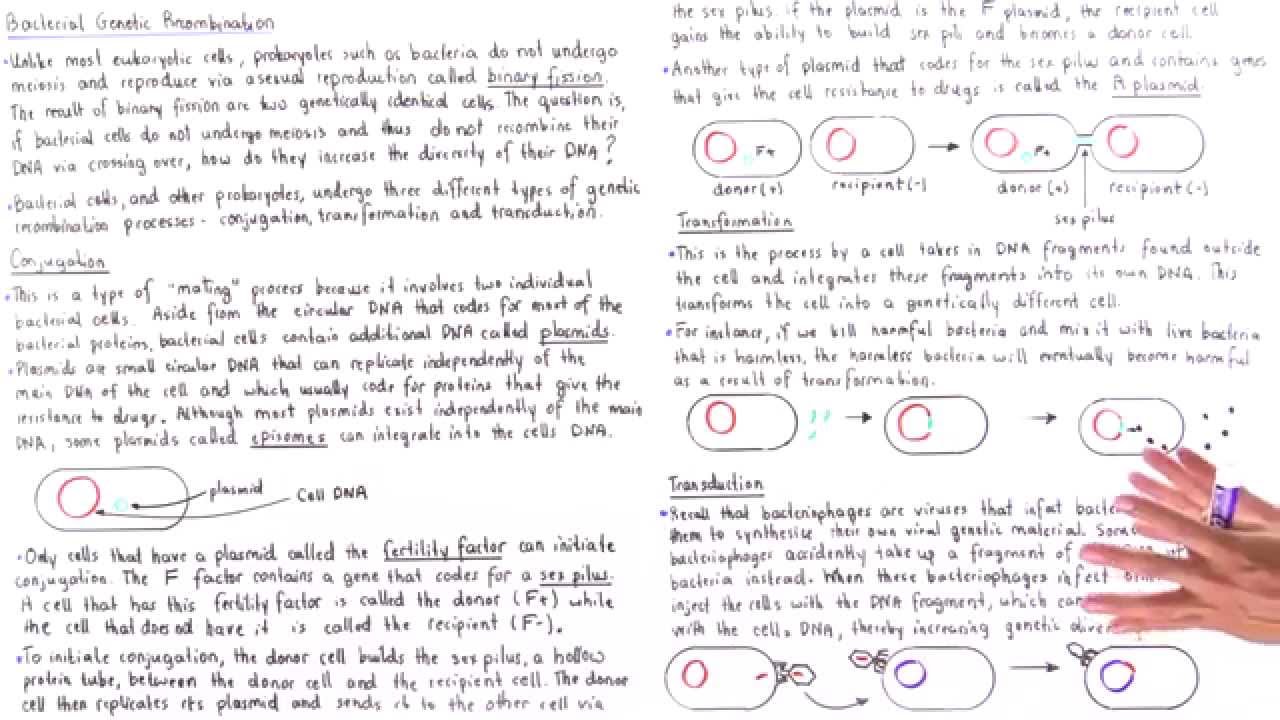 Bacterial Genetic Recombination
•Unlike most eukaryotic cells, prokaryotes such as bacteria do not undergo
meiosis and reproduce via asexual reproduction called binary fission.
The result of binary fission are two genetically identical cells. The question is,
if bacterial cells do not undergo meiosis and thus do not recombine their
DNA via crossing over, how do they increase the diversity of their DNA?
•Bacterial cells, and other prokaryotes, undergo three different types of genetic
recombination processes - conjugation, transformation and transduction.
Conjugation
•This is a type of "mating" process because it involves two individual
bacterial cells. Aside from the circular DNA that codes for most of the
bacterial proteins, bacterial cells contain additional DNA called plasmids.
•Plasmids are small circular DNA that can replicate independently of the
main DNA of the cell and which usually code for proteins that give the
resistance to drugs. Although most plasmids exist independently of the main
DNA, some plasmids called episomes can integrate into the cells DNA.
plasmid
Cell DNA
•Only cells that have a plasmid called the fertility factor can initiate
conjugation. The F factor contains a gene that codes for a sex pilus.
A cell that has this fertility factor is called the donor (F+) while
the cell that does not have it is called the recipient (F-).
•To initiate conjugation, the donor cell builds the sex pilus, a hollow
protein tube, between the donor cell and the recipient cell. The donor
cell then replicates its plasmid and sends it to the other cell via
the sex pilus. if the plasmid is the F plasmid, the recipient cell
gains the ability to build sex pili and becomes a donor cell.
•Another type of plasmid that codes for the sex pilus and contains genes
that give the cell resistance to drugs is called the R plasmid.
F+ F+
donor(+) recipient(-) donor(+) recipient(-)
sex pilus
Transformation
•This is the process by a cell takes in DNA fragments found outside
the cell and integrates these fragments into its own DNA. This
transforms the cell into a genetically different cell.
•For instance, if we kill harmful bacteria and mix it with live bacteria
that is harmless, the harmless bacteria will eventually become harmful
as a result of transformation.
Transduction
•Recall that bacteriophages are viruses that infect
them to synthesize their own viral genetic material.
bacteriophages accidently take up a fragment of
bacteria instead. When these bacteriophages infect
inject the cells with the DNA fragment, which can
with the cells DNA, thereby increasing genetic